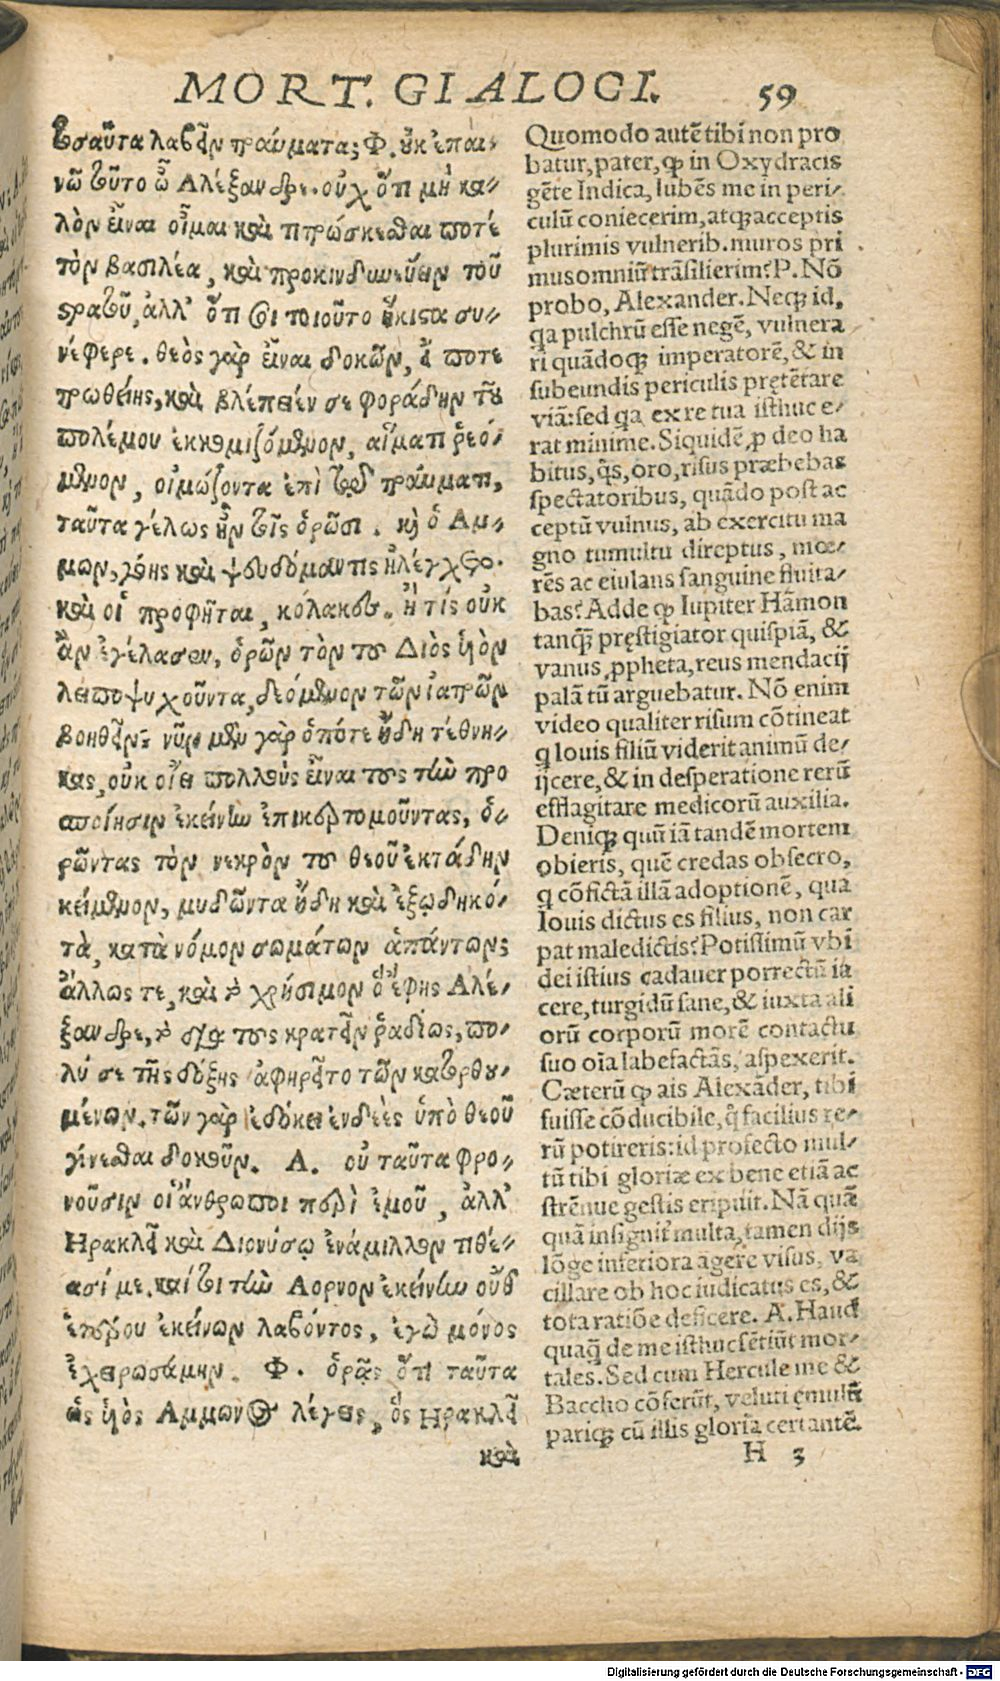 MORT. GIALOGI. 59
τοσαῦτα λαβεῖν τραύματα; Φ. οὐκ ἐπαι-
νῶ τοῦτο ὦ Αλέξανδρε. οὐχ ὅτι μὴ κα-
λὸν εἶναι οἶμαι καὶ τιτρώσκεσθαι ποτέ
τὸν βασιλέα, καὶ προκινδυνεύειν τοῦ
στρατοῦ, ἀλλ' ὅτι σοι τοιοῦτο ἥκιστα συ-
νέφερε. θεὸς γὰρ εἶναι δοκῶν, εἴ ποτε
τρωθείης, καὶ βλέπειέν σε φοράδην τοῦ
πολέμου ἐκκομιζόμενον, αἵματι ῥεό-
μενον, οἰμώζοντα ἐπὶ τῷ τραύματι,
ταῦτα γέλως ἦν τοῖς ὁρῶσι. καὶ ὁ Αμ-
μων, γόης καὶ ψευδόμαντις ἠλέγχετο.
καὶ οἱ προφῆται, κόλακες. ἢ τίς οὐκ
ἂν ἐγέλασεν, ὁρῶν τὸν τοῦ Διὸς ὑὸν
λειποψυχοῦντα, δεόμενον τῶν ἰατρῶν
βοηθεῖν; νῦν μὲν γὰρ ὁπότε ἤδη τέθνη-
κας, οὐκ οἴει πολλοὺς εἶναι τοὺς τὴν προ
σποίησιν ἐκείνην ἐπικερτομοῦντας, ὁ-
ρῶντας τὸν νεκρὸν τοῦ θεοῦ ἐκτάδην
κείμενον, μυδῶντα ἤδη καὶ ἐξῳδηκό-
τὰ, κατὰ νόμον σωμάτων ἁπάντων;
ἄλλως τε, καὶ τὸ χρήσιμον ὃ ἔφης Αλέ-
ξανδρε, τὸ διὰ τοῦτο κρατεῖν ῥαδίως, πο-
λύ σε τῆς δόξης ἀφηρεῖτο τῶν κατορθου-
μένων. τῶν γὰρ ἐδόκει ἐνδεὲς ὑπὸ θεοῦ
γίνεσθαι δοκοῦν. Α. οὐ ταῦτα φρο-
νοῦσιν οἱ ἄνθρωποι περὶ ἐμοῦ, ἀλλ'
Ηρακλεῖ καὶ Διονύσῳ ἐνάμιλλον τιθέ-
ασί με. καίτοι τὴν Αορνον ἐκείνην οὐδ
ἑτέρου ἐκείνων λαβόντος, ἐγὼ μόνος
ἐχειρωσάμην. Φ. ὁρᾷς ὅτι ταῦτα
ὡς ὑὸς Αμμωνος λέγεις, ὃς Ηρακλεῖ
καὶ
Quomodo autē tibi non pro
batur, pater, ꝙ in Oxydracis
gēte Indica, lubēs me in peri-
culū coniecerim, atqꝫ acceptis
plurimis vulnerib. muros pri
mus omniū trāsilierim? P. Nō
probo, Alexander. Neqꝫ id,
qa pulchrū esse negē, vulnera
ri quādoqꝫ imperatorē, & in
subeundis periculis prętētare
viā: sed qa ex re tua isthuc e-
rat minime. Siquidē, ꝓ deo ha
bitus, q̄s, oro, risus præbebas
spectatoribus, quādo post ac
ceptū vulnus, ab exercitu ma
gno tumultu direptus, mœ-
rēs ac eiulans sanguine fluita-
bas? Adde ꝙ Iupiter Hāmon
tanqꝫ pręstigiator quispiā, &
vanus ꝓpheta, reus mendacij
palā tū arguebatur. Nō enim
video qualiter risum cōtineat
q̨ Iouis filiū viderit animū de-
ijcere, & in desperatione rerū
efflagitare medicorū auxilia.
Deniqꝫ quū iā tandē mortem
obieris, quē credas obsecro,
q̨ cōfictā illā adoptionē, qua
Iouis dictus es filius, non car
pat maledictis? Potissimū vbi
dei istius cadauer porrectū ia
cere, turgidū sane, & iuxta ali
orū corporū morē contactu
suo oīa labefactās, aspexerit.
Cæterū ꝙ ais Alexāder, tibi
fuisse cōducibile, q̄ facilius re-
rū potireris: id profecto mul-
tū tibi gloriæ ex bene etiā ac
strēnue gestis eripuit. Nā quā
quā insignit̄ multa, tamen dijs
lōge inferiora agere visus, va
cillare ob hoc iudicatus es, &
tota ratiōe deficere. A. Haud
quaq̄ de me isthuc sētiūt mor-
tales. Sed cum Hercule me &
Baccho cōferūt, veluti ęmulū
pariqꝫ cū illis gloria certantē.
H 3
Digitalisierung gefördert durch die Deutsche Forschungsgemeinschaft - DFG